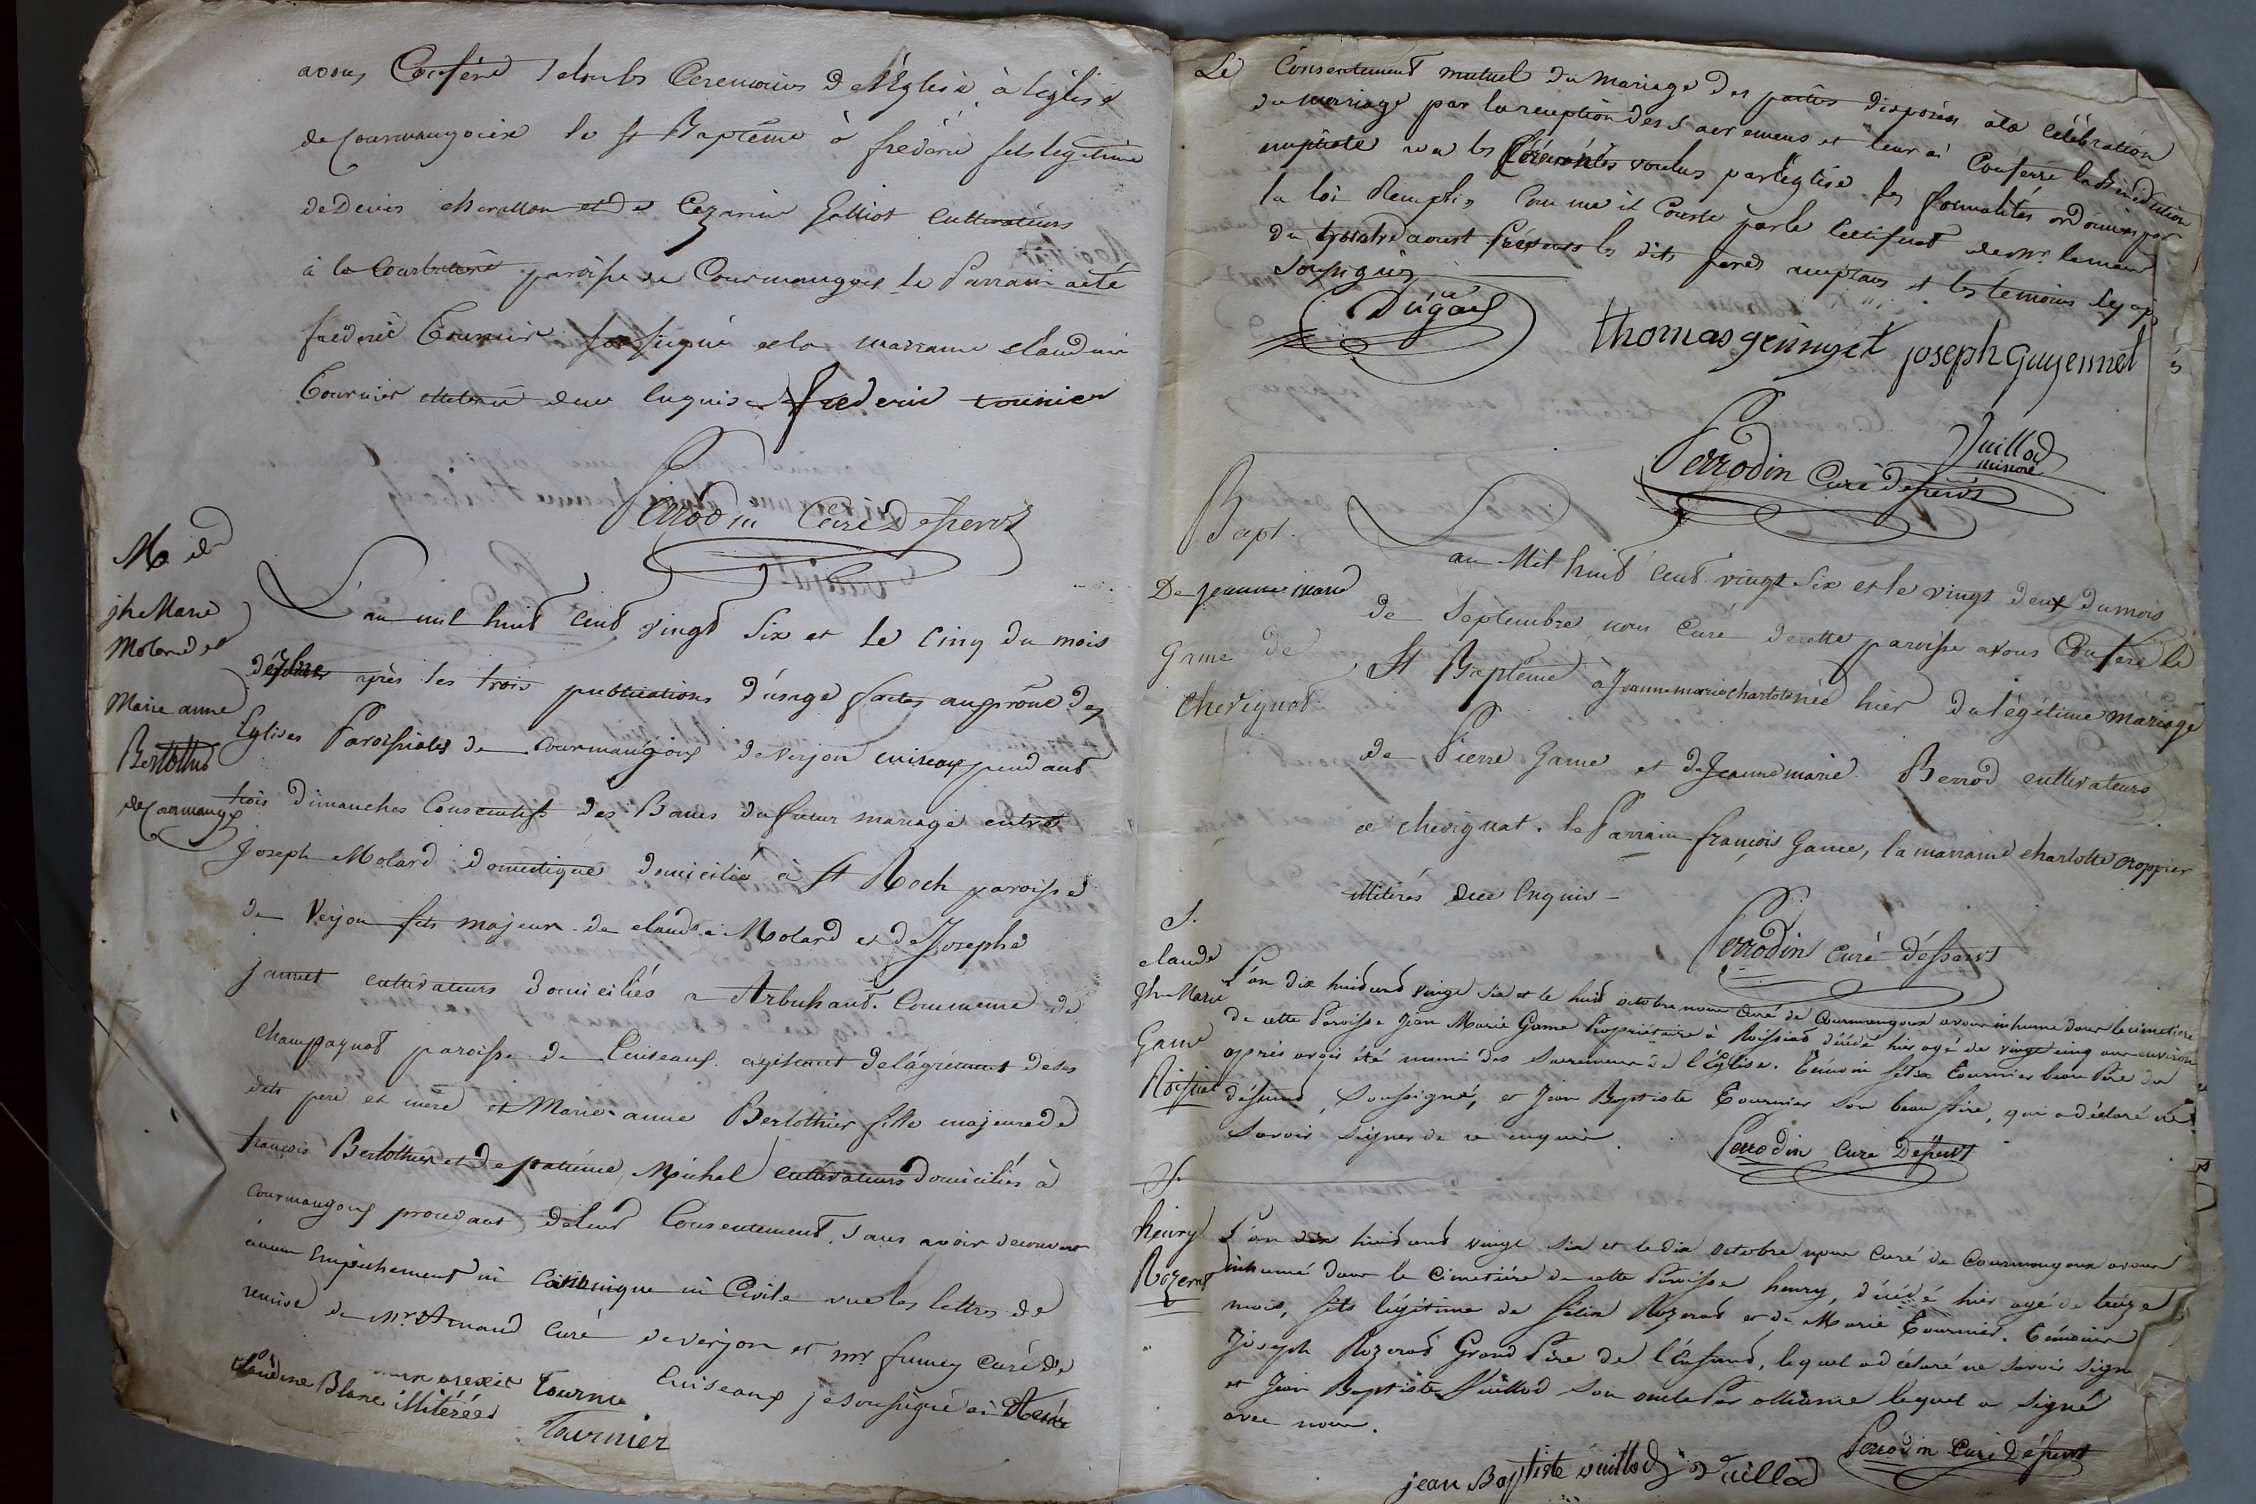 avons Conféré selon les Ceremonies de l'Eglise à l'église
de Courmangoux le st Baptême à fréderic fils légitime
de Denis chevallon et de Cezarine Galliot cultivateurs
à la Courbatière paroisse de Courmangoux le Parrain a été
fréderic Tournier soussigné et la marraine claudine
Tournier illiterée de ce enquise frederic tournier
Perrodin Curé Desservt
M de
jh Marie
Molard et
Marie anne
Bertothier
de Courmangx
L'an mil huit cent vingt six et le cinq du mois
de 7bre après les trois publications d'usage faites au prône des
Eglises Paroissiales de Courmangoux de verjon cuiseaux pendant
trois dimanches Consecutifs des Bans du futur mariage entre
Joseph Molard domestique domicilié à St Roch paroisse
de Verjon fils majeur de claude Molard et de Josephe
Jannet cultivateurs domiciliés a Arbuhant Commune de
Champagnat paroisse de Cuiseaux agissant de l'agrément de ses
dits pere et mère et Marie-anne Bertothier fille majeure de
françois Bertothier et de Michel cultivateurs domiciliés à
Courmangoux procedant de leur Consentement, sans avoir decouvert
aucun Empêchement ni Canonique ni Civile vue les lettres de
remise de Mr Arnaud Curé de verjon et mr fumey Curé de
Cuiseaux je soussigné ai
claudine Blanc illitérées
Tournier
Le Consentement mutuel du mariage des parties disposées à la célébration
du mariage par la reception des sacremens et leur ai Conferré la Bénédiction
nuptiale vu les volus par l'église les formalités ordonnées par
la loi Remplis Comme il Conste par le Certificat de mr le maire
du aoust présents les dits peres nuptaux et les témoins
soussignés
Dugad
thomas geninget joseph guyennet
Vuillod
Perrodin Curé desservt
Bapt.
De jeanne marie
Game de
Chevignat
L'an Mil huit cent vingt Six et le vingt deux du mois
de Septembre nous Curé de cette paroisse avons Conferé le
St Baptême à Jeanne marie charlote née hier du légitime mariage
de Pierre Game et de Jeanne marie Berrod cultivateurs
a chevignat. le Parrain françois Game, la marraine charlotte croppier
illitérés de ce Enquis
Perrodin curé desservt
S.
claude
Jh Marie
Game
Roissiat
L'an dix huit cent vingt six et le huit octobre nous curé de Courmangoux avons inhumé dans le cimetiere
de cette Paroisse Jean Marie Game Propriétaire à Roissiat décédé hier agé de vingt cinq ans environ
après avoir été muni des Sacremens de l'Église. Témoin félix Tournier beau Père du
défunt, Soussigné, et Jean Baptiste Tournier son beau frère, qui a déclaré ne
savoir signer de ce enquis.
Perrodin curé Desservt
S.
henry
Rozerat
L'an dix huit cent vingt six et le dix octobre nous curé de Courmangoux avons
inhumé dans le cimetière de cette Paroisse henry, décédé hier agé de treize
mois, fils légitime de félix Rozerat et de Marie Tournier. Témoins
Joseph Rozerat Grand Père de l'Enfant, lequel a déclaré ne savoir signer
et Jean Baptiste Vuillod son oncle Par alliance lequel a signé
avec nous.
Perrodin Curé Desservt
jean Baptiste vuillod Vuillod